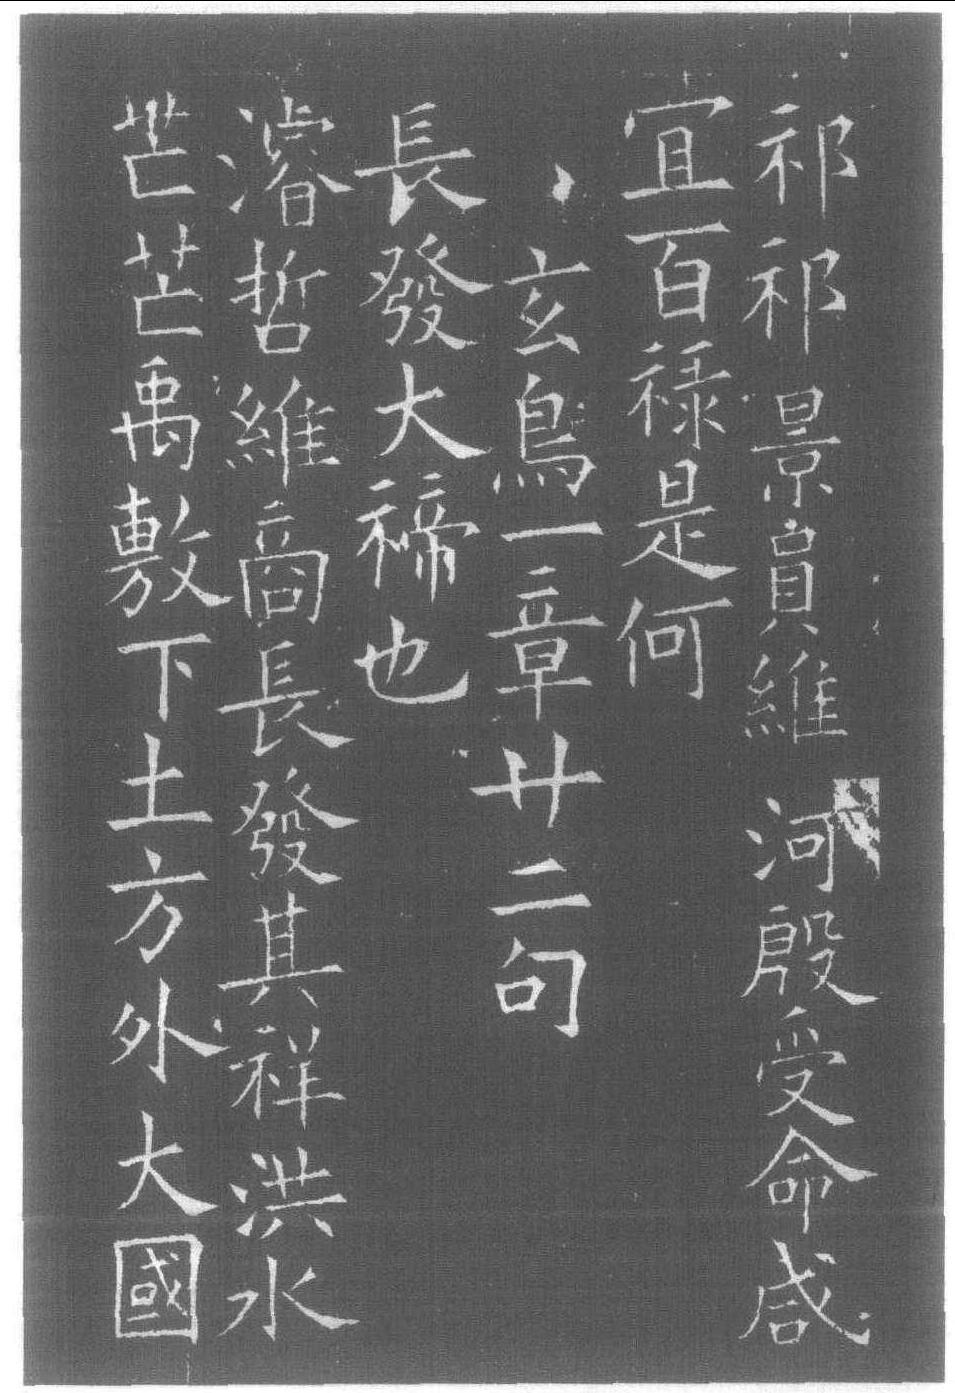 祁祁景員維河殷受命咸
宜百祿是何
玄鳥一章廿二句
長發大禘也
濬哲維商長發其祥洪水
芒芒禹敷下土方外大國